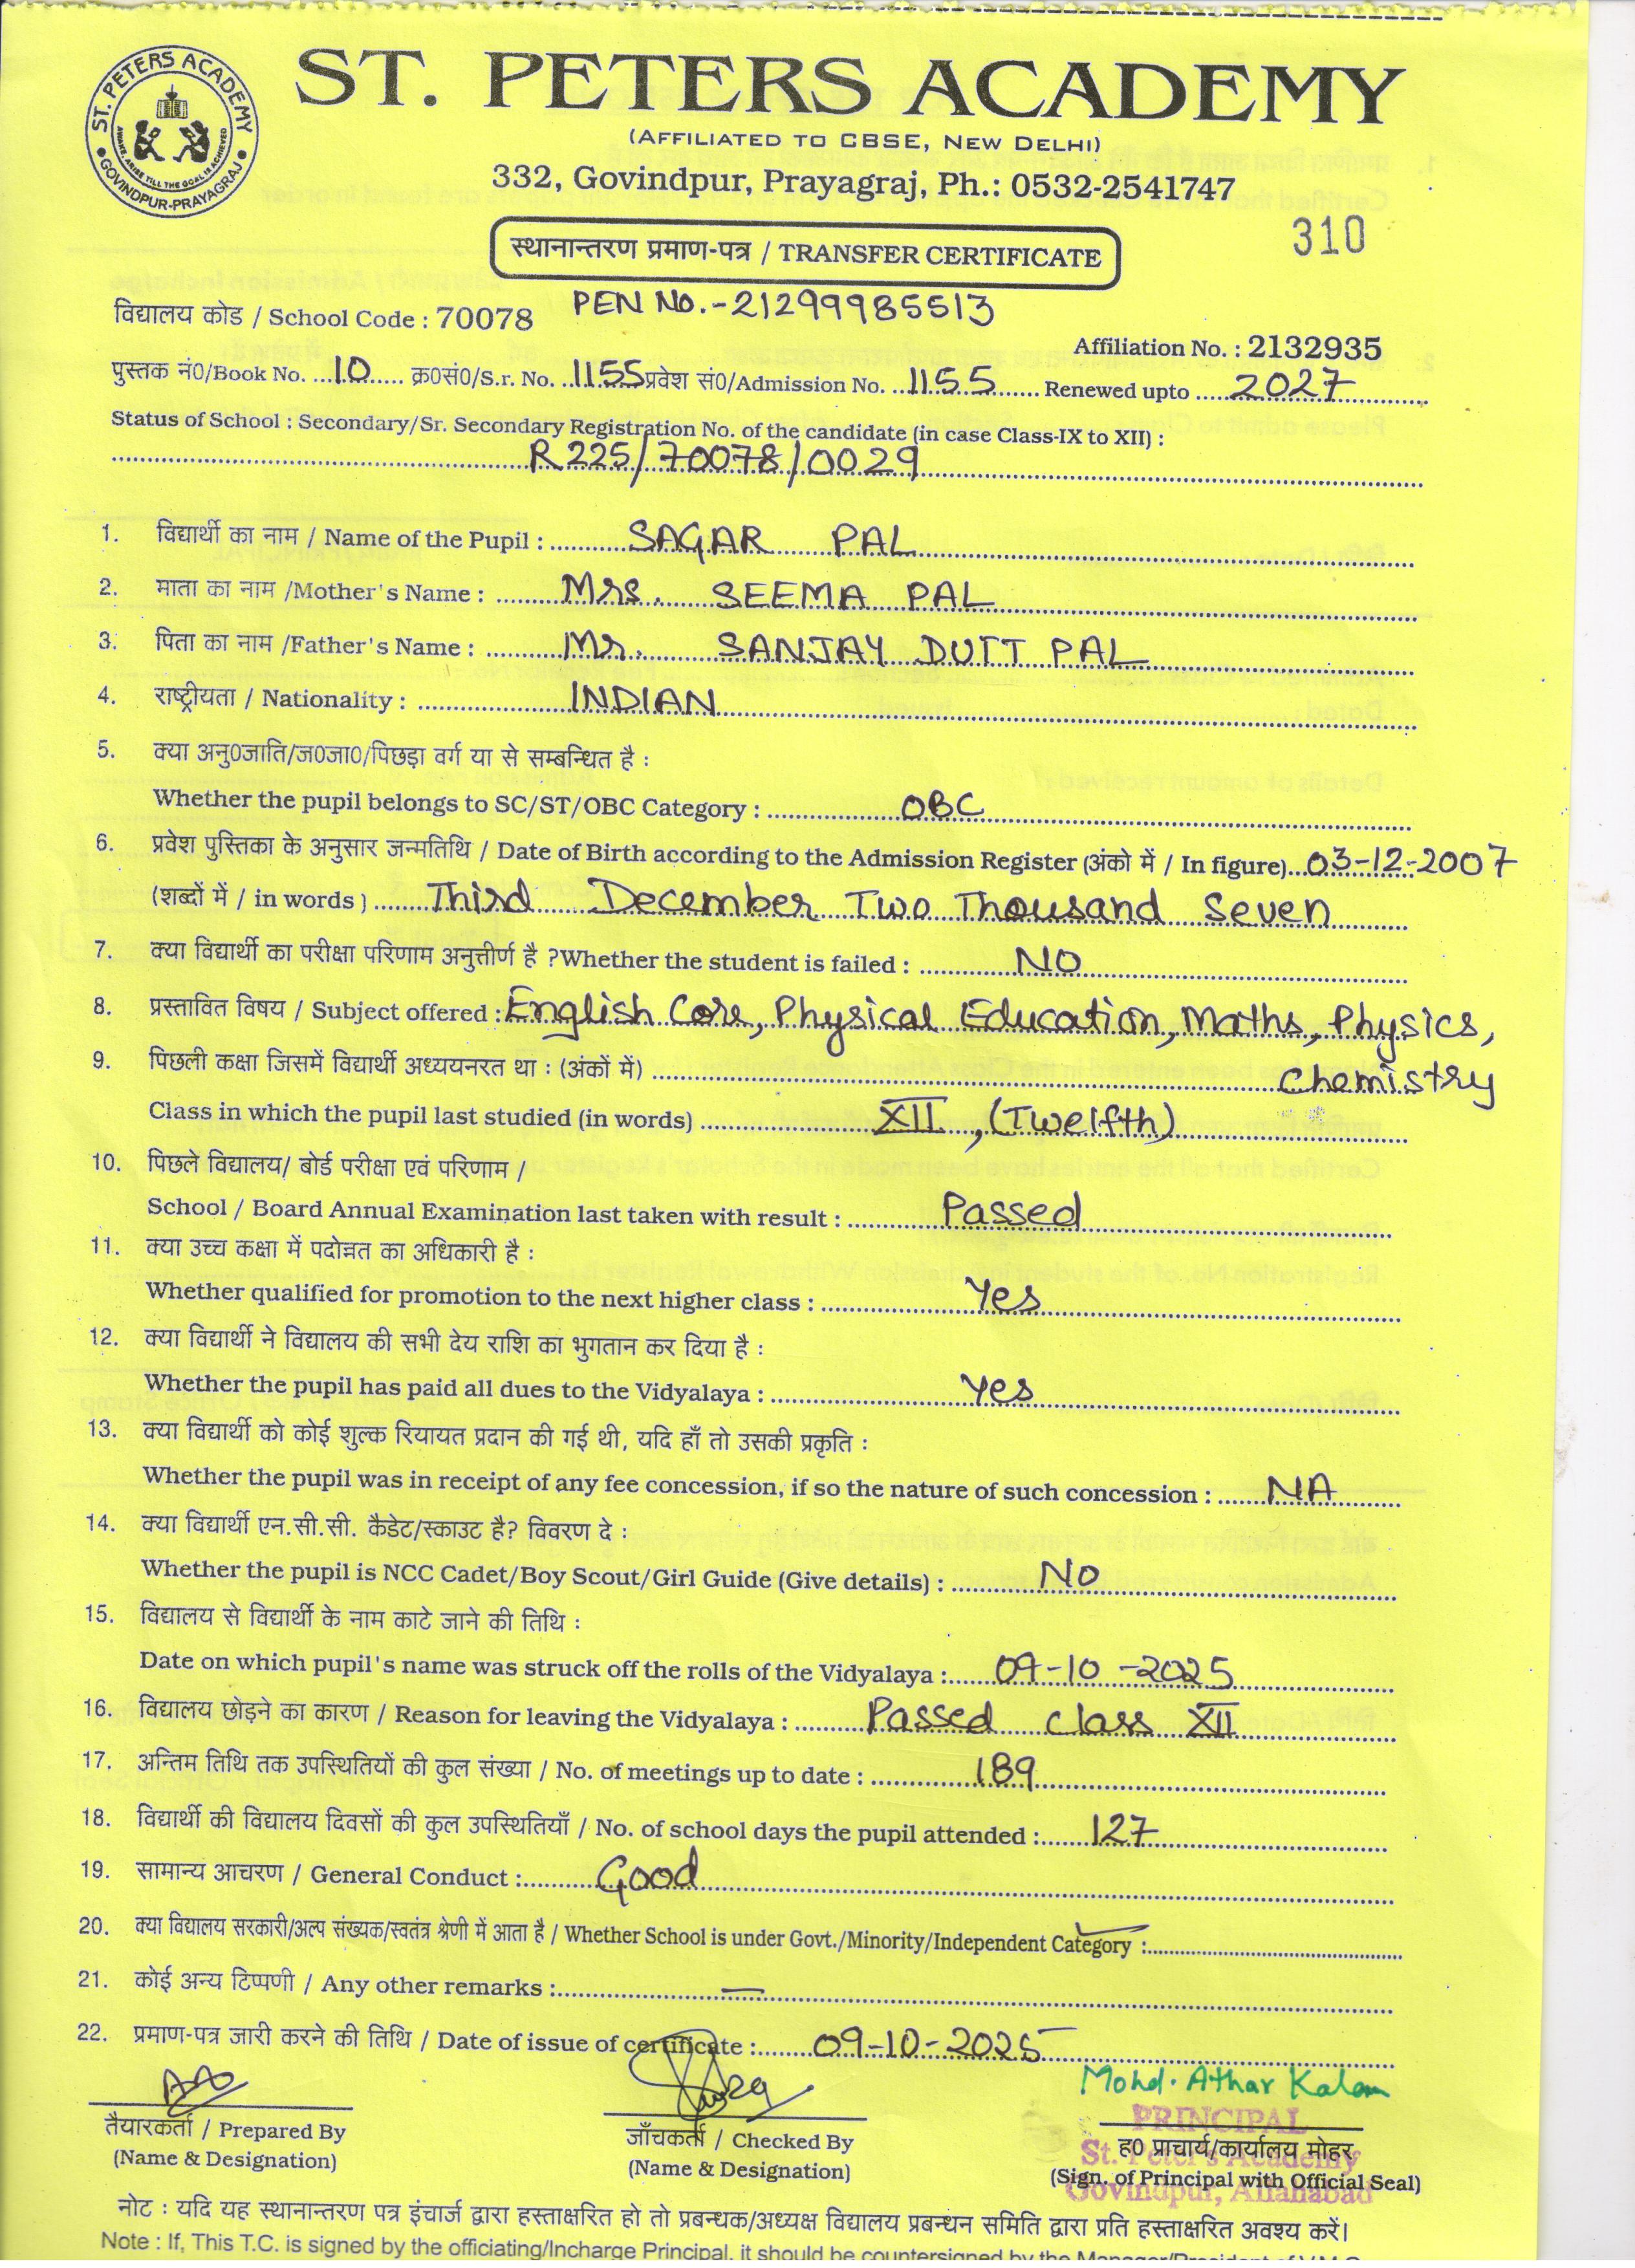 ST. PETERS ACADEMY
AWAKE, ARISE TILL THE GOAL IS ACHIEVED
GOVINDPUR-PRAYAGRAJ
ST. PETERS ACADEMY
(AFFILIATED TO CBSE, NEW DELHI)
332, Govindpur, Prayagraj, Ph.: 0532-2541747
310
स्थानान्तरण प्रमाण-पत्र / TRANSFER CERTIFICATE
विद्यालय कोड / School Code : 70078 PEN No.-21299985513
Affiliation No. : 2132935
पुस्तक नं0/Book No. ...10..... क्र0सं0/S.r. No. ..1155 प्रवेश सं0/Admission No. ..1155...... Renewed upto .....2027
Status of School : Secondary/Sr. Secondary Registration No. of the candidate (in case Class-IX to XII) :
R225/70078/0029
1. विद्यार्थी का नाम / Name of the Pupil : SAGAR PAL
2. माता का नाम /Mother's Name : Mrs. SEEMA PAL
3. पिता का नाम /Father's Name : Mr. SANJAY DUTT PAL
4. राष्ट्रीयता / Nationality : INDIAN
5. क्या अनु0जाति/ज0जा0/पिछड़ा वर्ग या से सम्बन्धित है :
Whether the pupil belongs to SC/ST/OBC Category : OBC
6. प्रवेश पुस्तिका के अनुसार जन्मतिथि / Date of Birth according to the Admission Register (अंको में / In figure)...03-12-2007
(शब्दों में / in words ) Third December Two Thousand Seven
7. क्या विद्यार्थी का परीक्षा परिणाम अनुत्तीर्ण है ?Whether the student is failed : NO
8. प्रस्तावित विषय / Subject offered : English Core, Physical Education, Maths, Physics,
9. पिछली कक्षा जिसमें विद्यार्थी अध्ययनरत था : (अंकों में) Chemistry
Class in which the pupil last studied (in words) XII, (Twelfth)
10. पिछले विद्यालय/ बोर्ड परीक्षा एवं परिणाम /
School / Board Annual Examination last taken with result : Passed
11. क्या उच्च कक्षा में पदोन्नत का अधिकारी है :
Whether qualified for promotion to the next higher class : Yes
12. क्या विद्यार्थी ने विद्यालय की सभी देय राशि का भुगतान कर दिया है :
Whether the pupil has paid all dues to the Vidyalaya : Yes
13. क्या विद्यार्थी को कोई शुल्क रियायत प्रदान की गई थी, यदि हाँ तो उसकी प्रकृति :
Whether the pupil was in receipt of any fee concession, if so the nature of such concession : NA
14. क्या विद्यार्थी एन.सी.सी. कैडेट/स्काउट है? विवरण दे :
Whether the pupil is NCC Cadet/Boy Scout/Girl Guide (Give details) : No
15. विद्यालय से विद्यार्थी के नाम काटे जाने की तिथि :
Date on which pupil's name was struck off the rolls of the Vidyalaya : 09-10-2025
16. विद्यालय छोड़ने का कारण / Reason for leaving the Vidyalaya : Passed class XII
17. अन्तिम तिथि तक उपस्थितियों की कुल संख्या / No. of meetings up to date : 189
18. विद्यार्थी की विद्यालय दिवसों की कुल उपस्थितियाँ / No. of school days the pupil attended : 127
19. सामान्य आचरण / General Conduct : Good
20. क्या विद्यालय सरकारी/अल्प संख्यक/स्वतंत्र श्रेणी में आता है / Whether School is under Govt./Minority/Independent Category :
21. कोई अन्य टिप्पणी / Any other remarks : —
22. प्रमाण-पत्र जारी करने की तिथि / Date of issue of certificate : 09-10-2025
Mohd. Athar Kalam
PRINCIPAL
St. Peter's Academy
Govindpur, Allahabad
तैयारकर्ता / Prepared By
(Name & Designation)
जाँचकर्ता / Checked By
(Name & Designation)
ह0 प्राचार्य/कार्यालय मोहर
(Sign. of Principal with Official Seal)
नोट : यदि यह स्थानान्तरण पत्र इंचार्ज द्वारा हस्ताक्षरित हो तो प्रबन्धक/अध्यक्ष विद्यालय प्रबन्धन समिति द्वारा प्रति हस्ताक्षरित अवश्य करें।
Note : If, This T.C. is signed by the officiating/Incharge Principal, it should be countersigned by the